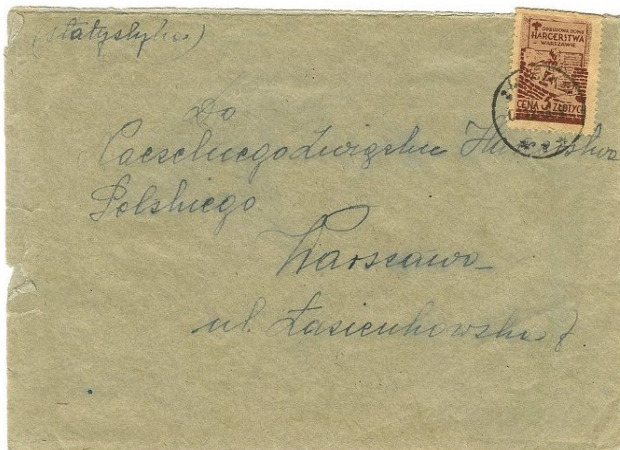 (statystyka)
ODBUDOWA DOMU
HARCERSTWA
W WARSZAWIE
CENA 3 ZŁOTYCH
Do
Naczelnego Związku Harcerstwa
Polskiego
Warszawa
ul. Łazienkowska 7